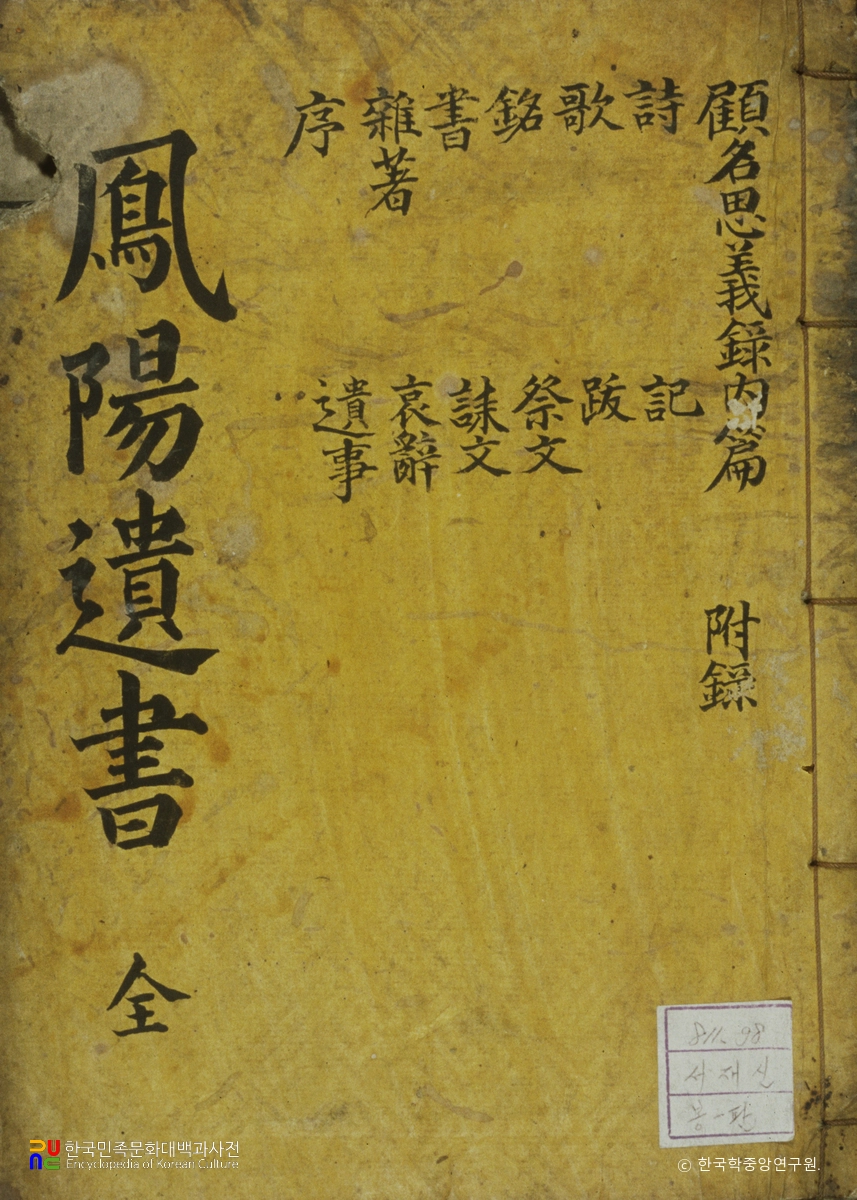 顧名思義錄内篇
附錄
詩
歌
銘
書
雜著
序
記
跋
祭文
誄文
哀辭
遺事
鳳陽遺書
全
811.98
한국민족문화대백과사전
Encyclopedia of Korean Culture
© 한국학중앙연구원.